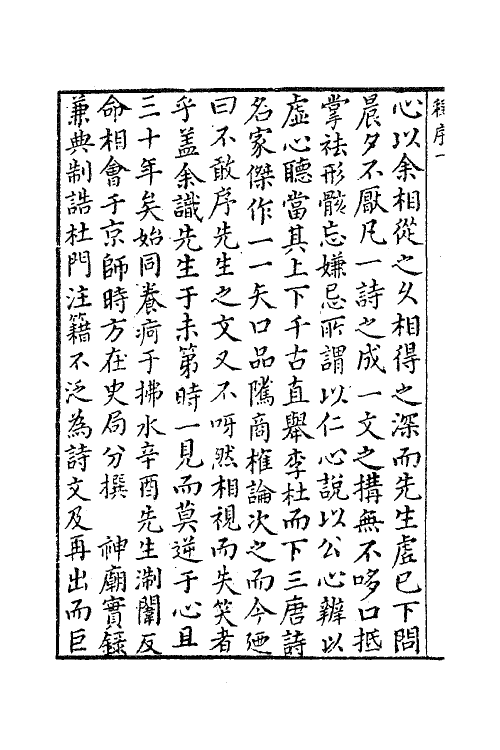 程序一
心以余相從之久相得之深而先生虛已下問
晨夕不厭凡一詩之成一文之搆無不哆口抵
掌袪形骸忘嫌忌所謂以仁心說以公心辨以
虛心聽當其上下千古直舉李杜而下三唐詩
名家傑作一一矢口品隲商榷論次之而今廼
曰不敢序先生之文又不呀然相視而失笑者
乎盖余識先生于未第時一見而莫逆于心且
三十年矣始同養疴于拂水辛酉先生淛闈反
命相會于京師時方在史局分撰　神廟實録
兼典制誥杜門注籍不泛為詩文及再出而巨